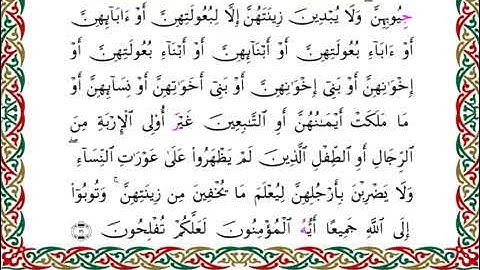 جُيُوبِهِنَّ ۖ وَلَا يُبْدِينَ زِينَتَهُنَّ إِلَّا لِبُعُولَتِهِنَّ أَوْ ءَابَآئِهِنَّ
أَوْ ءَابَآءِ بُعُولَتِهِنَّ أَوْ أَبْنَآئِهِنَّ أَوْ أَبْنَآءِ بُعُولَتِهِنَّ أَوْ
إِخْوَٰنِهِنَّ أَوْ بَنِىٓ إِخْوَٰنِهِنَّ أَوْ بَنِىٓ أَخَوَٰتِهِنَّ أَوْ نِسَآئِهِنَّ أَوْ
مَا مَلَكَتْ أَيْمَٰنُهُنَّ أَوِ ٱلتَّٰبِعِينَ غَيْرَ أُو۟لِى ٱلْإِرْبَةِ مِنَ
ٱلرِّجَالِ أَوِ ٱلطِّفْلِ ٱلَّذِينَ لَمْ يَظْهَرُوا۟ عَلَىٰ عَوْرَٰتِ ٱلنِّسَآءِ ۖ
وَلَا يَضْرِبْنَ بِأَرْجُلِهِنَّ لِيُعْلَمَ مَا يُخْفِينَ مِن زِينَتِهِنَّ ۚ وَتُوبُوٓا۟
إِلَى ٱللَّهِ جَمِيعًا أَيُّهَ ٱلْمُؤْمِنُونَ لَعَلَّكُمْ تُفْلِحُونَ